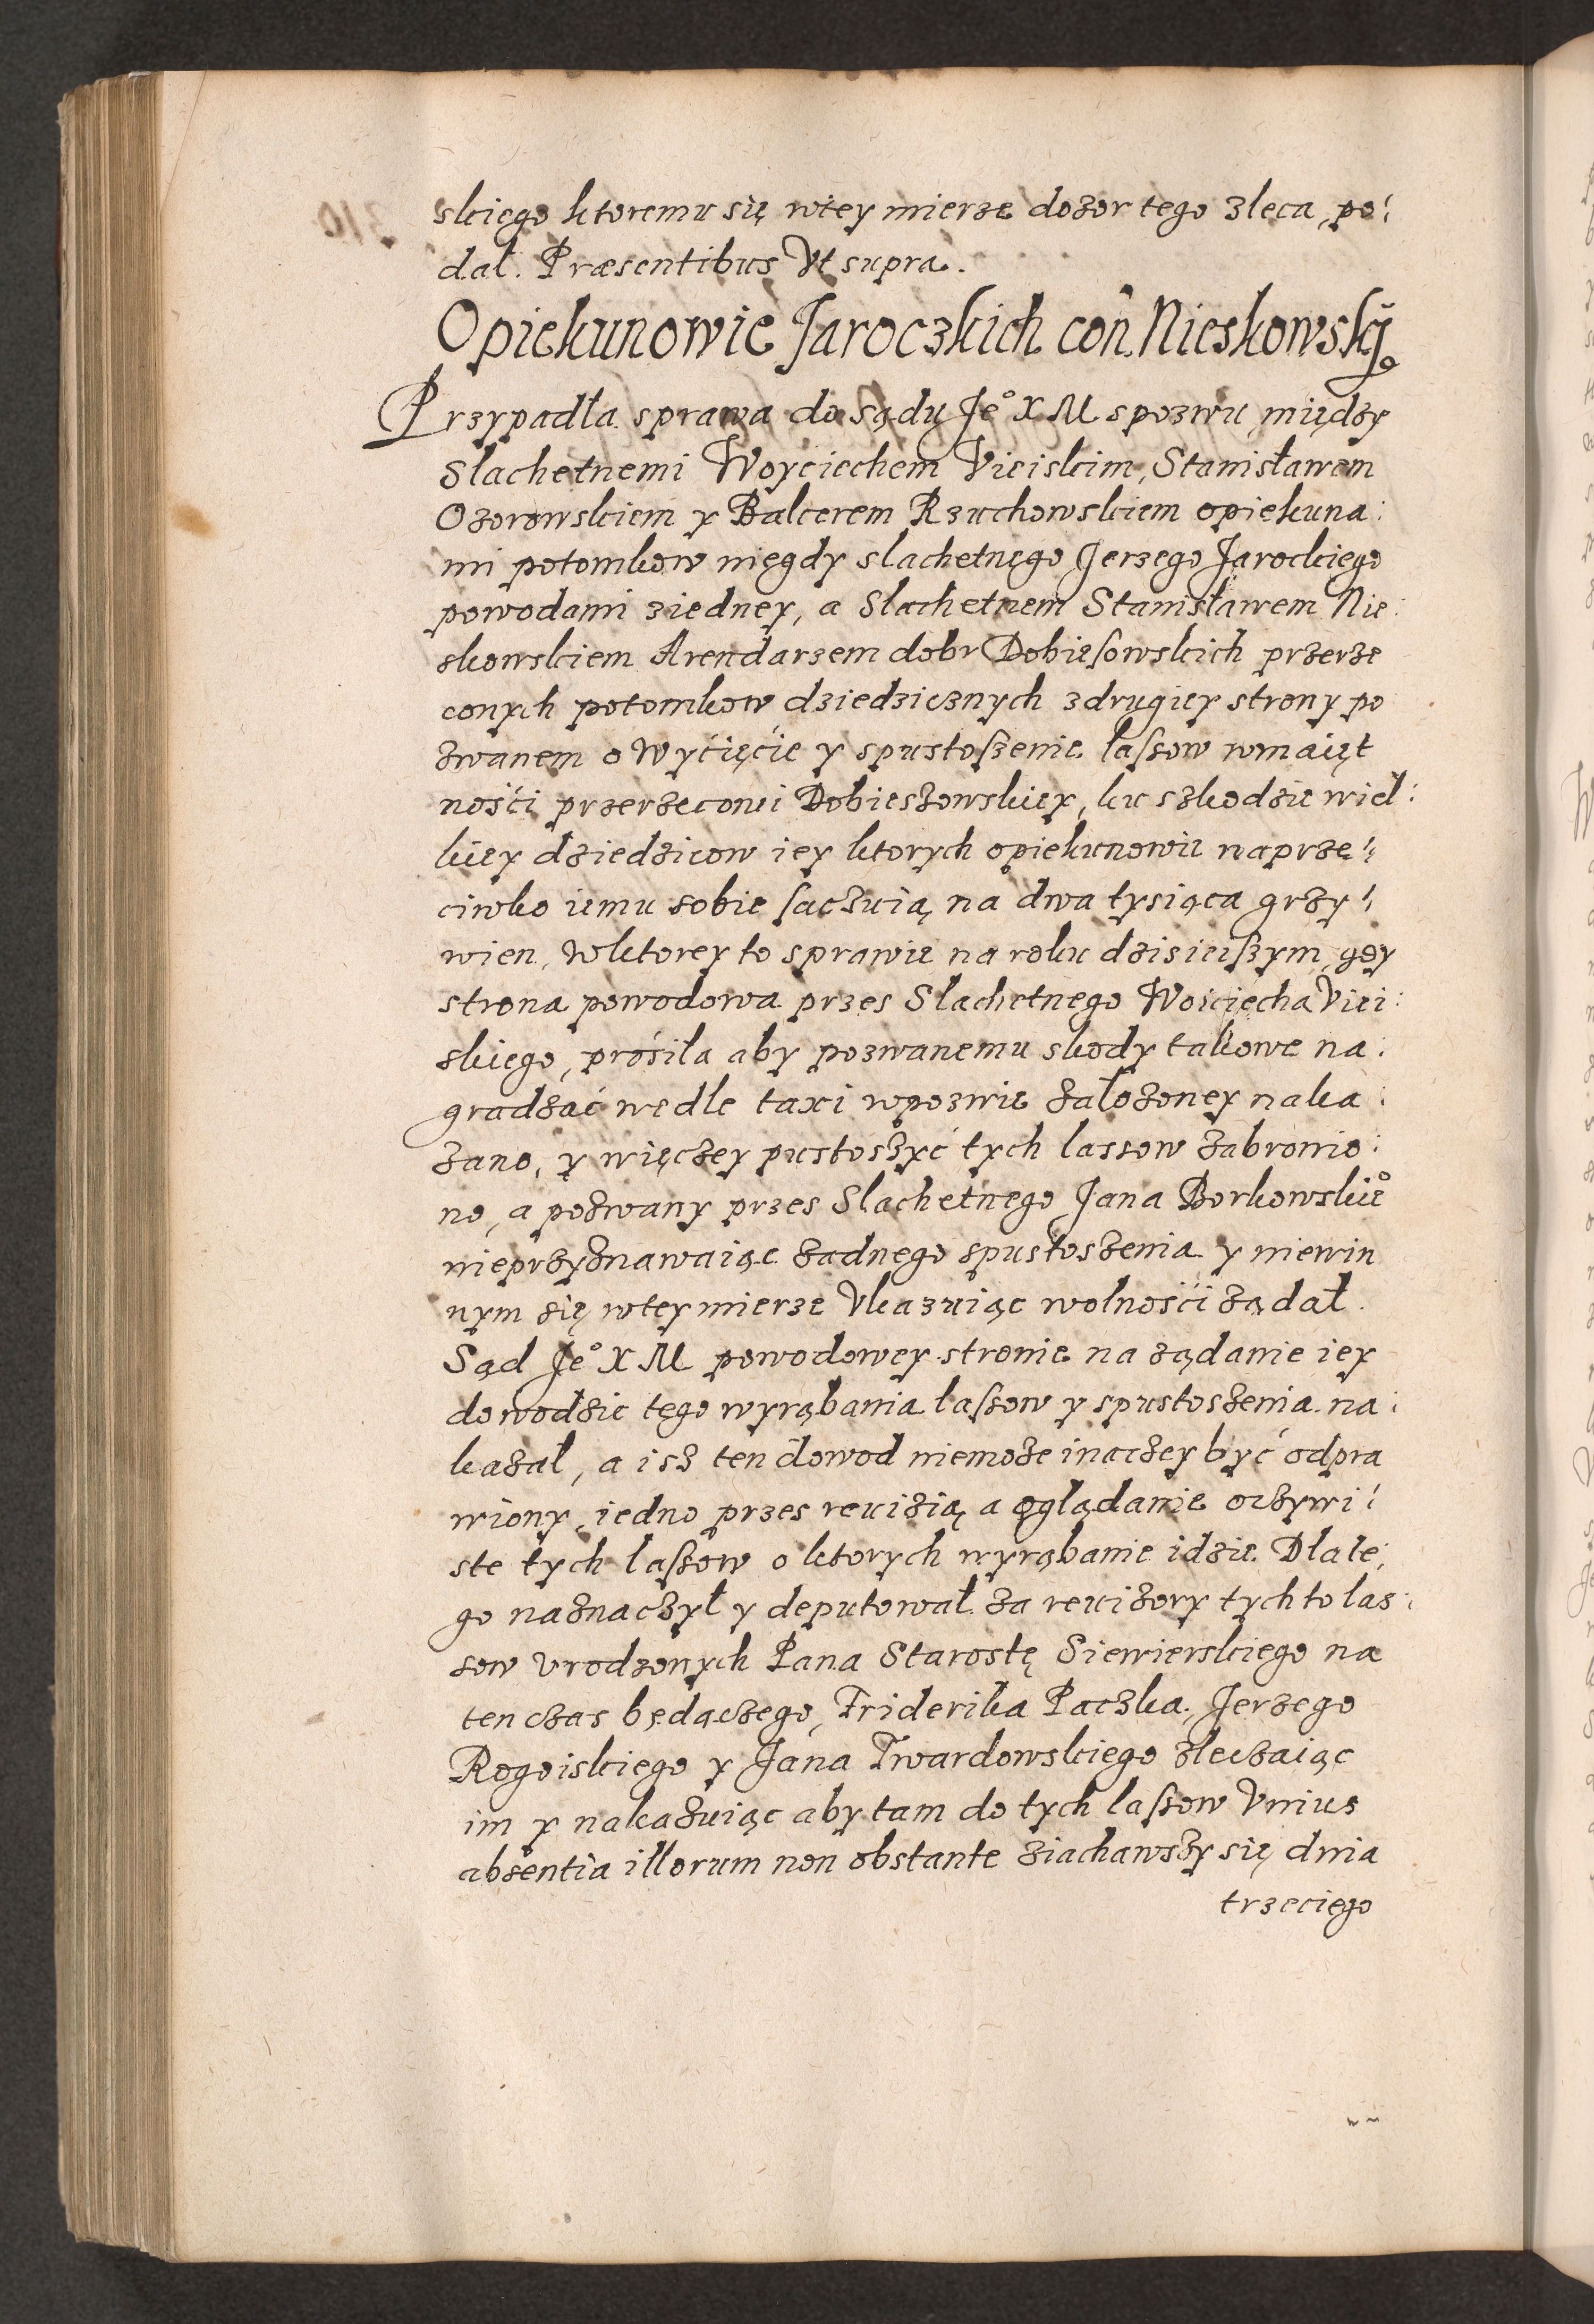 skiego ktoremu się wtey mierze dozor tego zleca, po:
dał. Præsentibus Vt supra.
Opiekunowie Jaroczkich con. Nieskowskÿ
Przypadła sprawa do sądu Je° X M spozwu między
Slachetnemi Woyciechem Vieiskim, Stanisławem
Ozorowskiem y Balcerem Rzuchowskiem opiekuna:
mi potomkow niegdy slachetnego Jerzego Jarockiego
powodami ziedney, a Slachetnem Stanisławem Nie:
skowskiem Arendarzem dobr Dobieſowskich przerze
conych potomkow dziedzicznych zdrugiey strony po
zwanem o wyćięćie y spustoſzenie laſsow wmaięt
nośći przerzeconei Dobieszowskiey, ku szkodzie wiel:
kiey dziedzicow iey ktorych opiekunowie naprze:
ciwko iemu sobie ſaczuią na dwa tysiąca grzy:
wien, Wktorey to sprawie na roku dzisieiſzym, gdy
strona powodowa przes Slachetnego Woiciecha Viei:
skiego, prośiła aby pozwanemu skody takowe na:
gradzać wedle taxi wpozwie załozoney naka:
zano, y więczey pustoszyć tych lassow zabronio:
no, a pozwany przes Slachetnego Jana Borkowskie°
nieprzyznawaiąc zadnego spustoszenia y niewin
nym się wtey mierze Vkazuiąc wolnośći żądał.
Sąd Je° X M powodowey stronie na ządanie iey
dowodzic tego wyrąbania laſsow y spustoszenia na:
kazał, a isz ten dowod niemoze inaczey być odpra
wiony, iedno przes reuizią a oglądanie oczywi:
ste tych laſsow o ktorych wyrąbanie idzie. Dlate:
go naznaczył y deputował za reuizory tych to las:
sow vrodzonych Pana Starostę Siewierskiego na
ten czas będączego, Friderika Paczka, Jerzego
Rogoiskiego y Jana Twardowskiego zleczaiąc
im y nakazuiąc aby tam do tych laſsow Vnius
absentia illorum non obstante ziachawszy się dnia
trzeciego